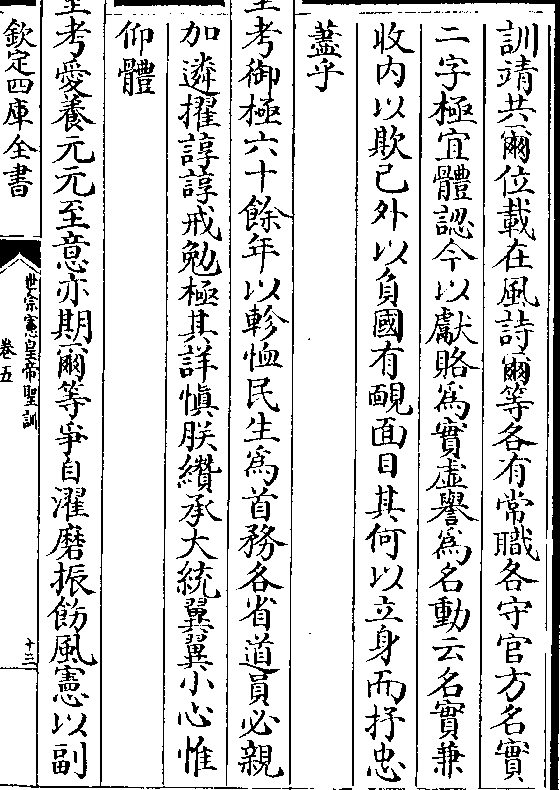 訓靖共爾位載在風詩爾等各有常職各守官方名實
二字極宜體認今以獻賂為實虛譽為名動云名實兼
收内以欺已外以負國有靦面目其何以立身而抒忠
藎乎
聖考御極六十餘年以軫恤民生為首務各省道員必親
加遴擢諄諄戒勉極其詳慎朕纘承大統翼翼小心惟
仰體
聖考愛養元元至意亦期爾等爭自濯磨振飭風憲以副
欽定四庫全書
世宗憲皇帝聖訓
卷五
十三